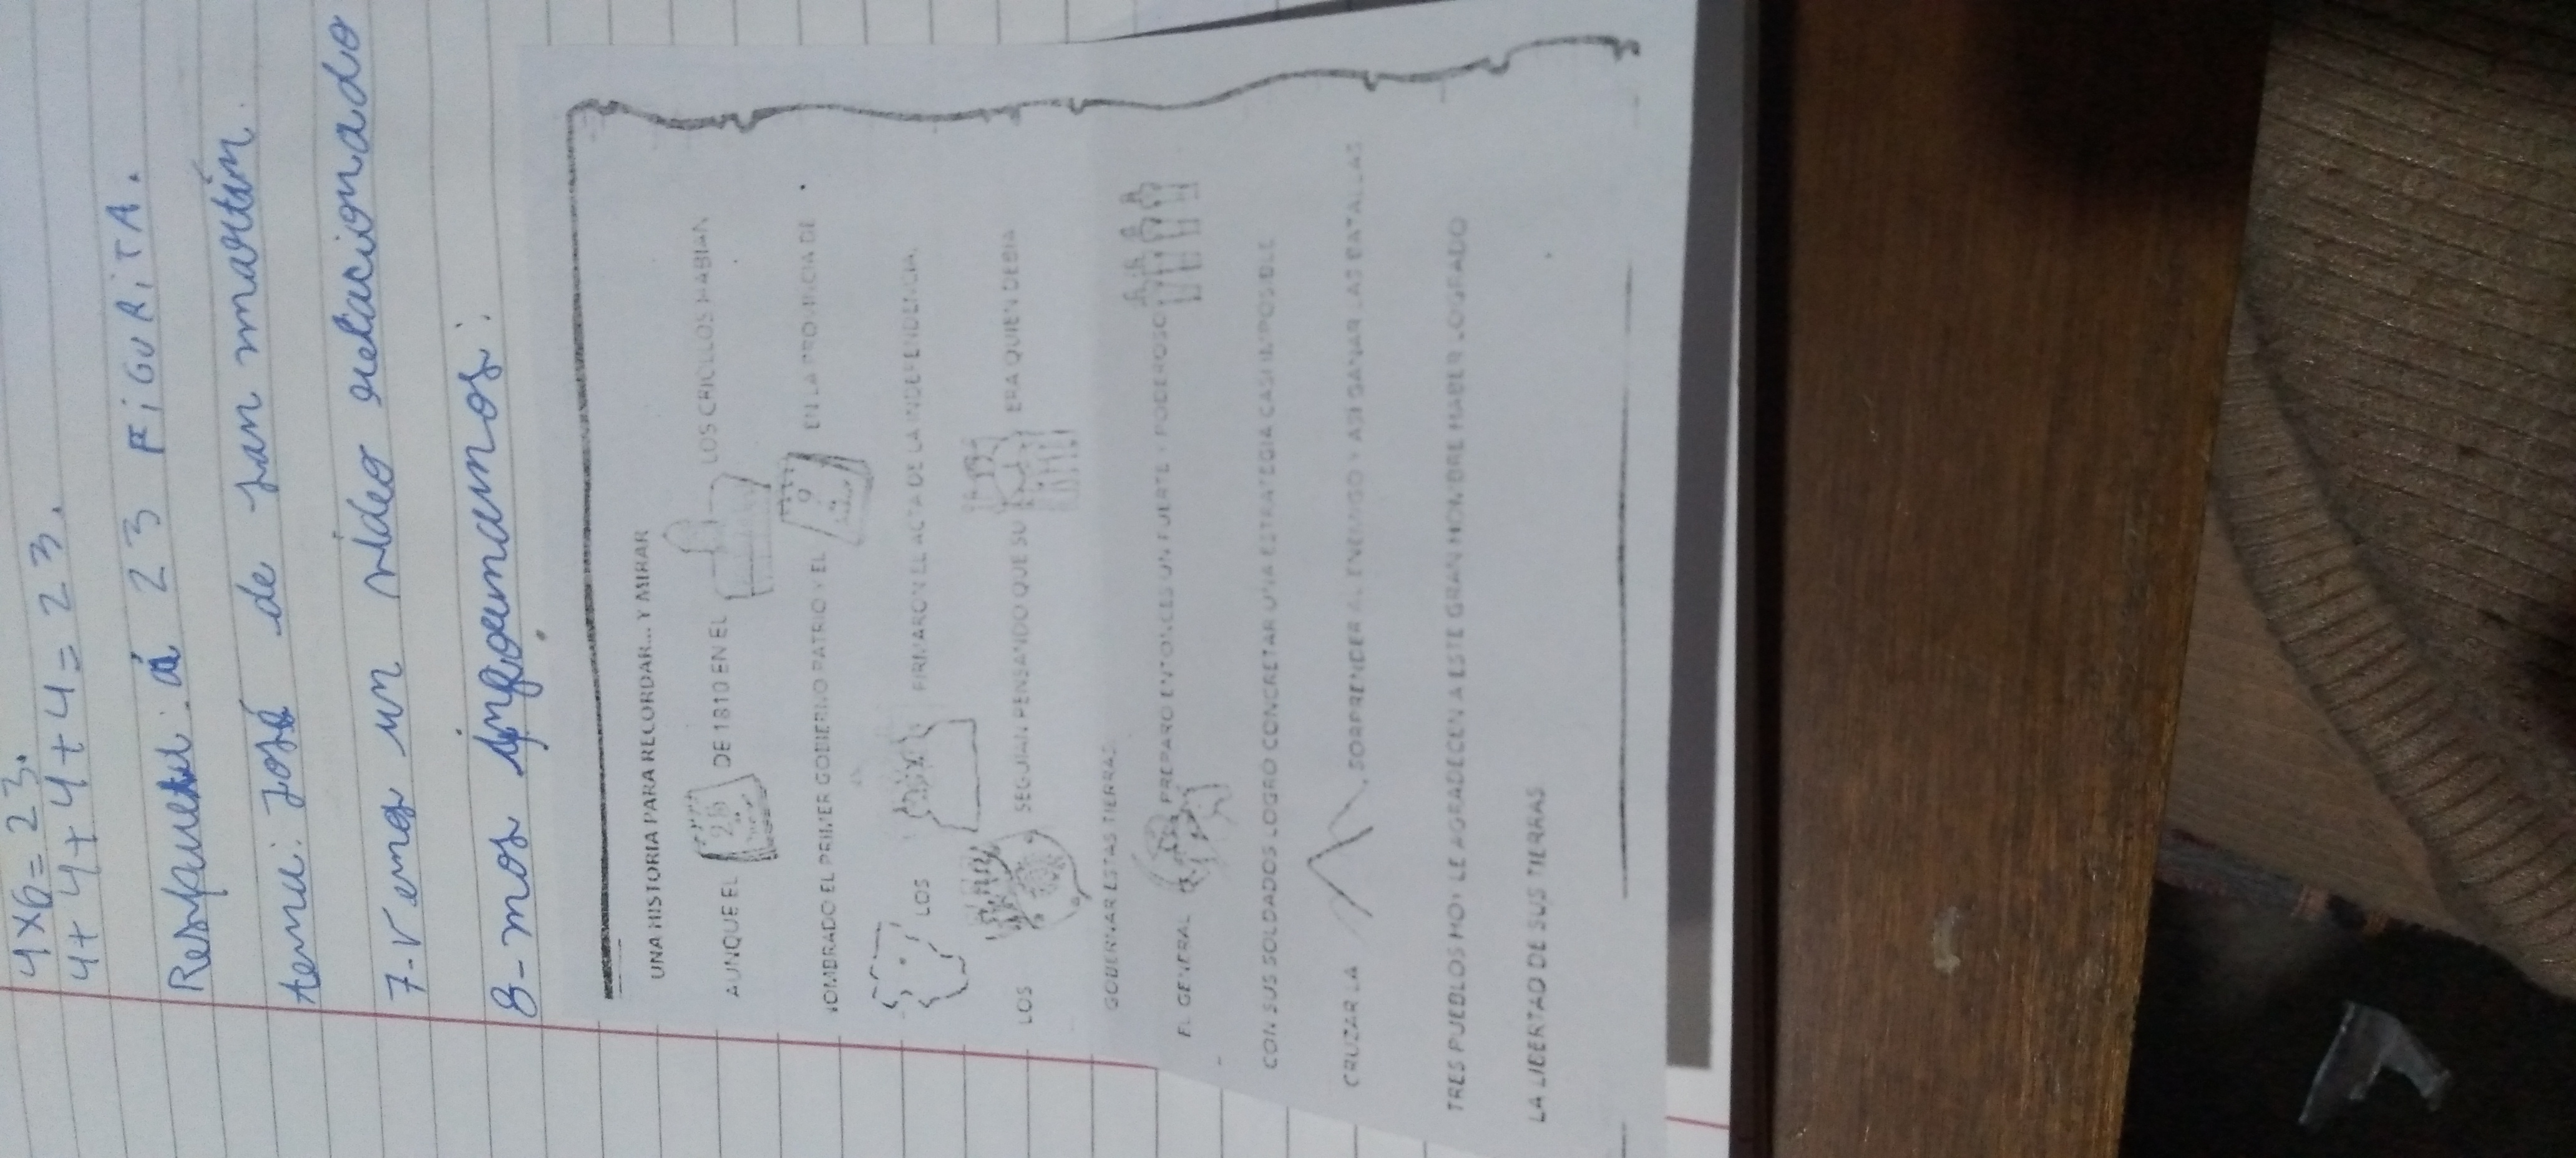 4x6=23.
4+4+4+4=23.
Respuesta: á 23 FiGURiTA.
Tema: José de san martín.
7-Vemos un video relacionado
8-nos informamos:
UNA HISTORIA PARA RECORDAR... Y MIRAR
AUNQUE EL 25 DE 1810 EN EL LOS CRIOLLOS HABIAN
NOMBRADO EL PRIMER GOBIERNO PATRIO Y EL 9 EN LA PROVINCIA DE
LOS FIRMARON EL ACTA DE LA INDEPENDENCIA,
LOS SEGUIAN PENSANDO QUE SU ERA QUIEN DEBIA
GOBERNAR ESTAS TIERRAS.
EL GENERAL PREPARO ENTONCES UN FUERTE Y PODEROSO
CON SUS SOLDADOS LOGRO CONCRETAR UNA ESTRATEGIA CASI IMPOSIBLE
CRUZAR LA , SORPRENDER AL ENEMIGO Y ASI GANAR LAS BATALLAS
TRES PUEBLOS HOY LE AGRADECEN A ESTE GRAN HOMBRE HABER LOGRADO
LA LIBERTAD DE SUS TIERRAS